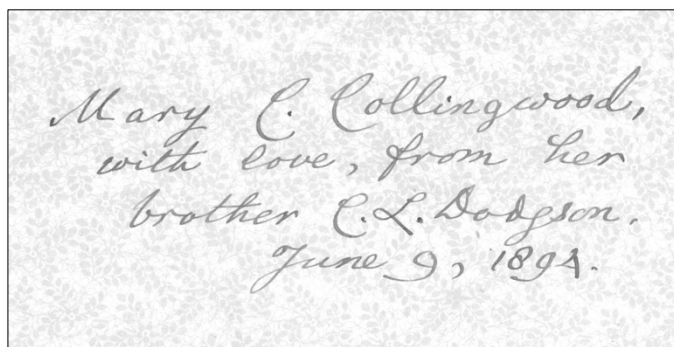 Mary C. Collingwood,
with love, from her
brother C.L. Dodgson.
June 9, 1894.